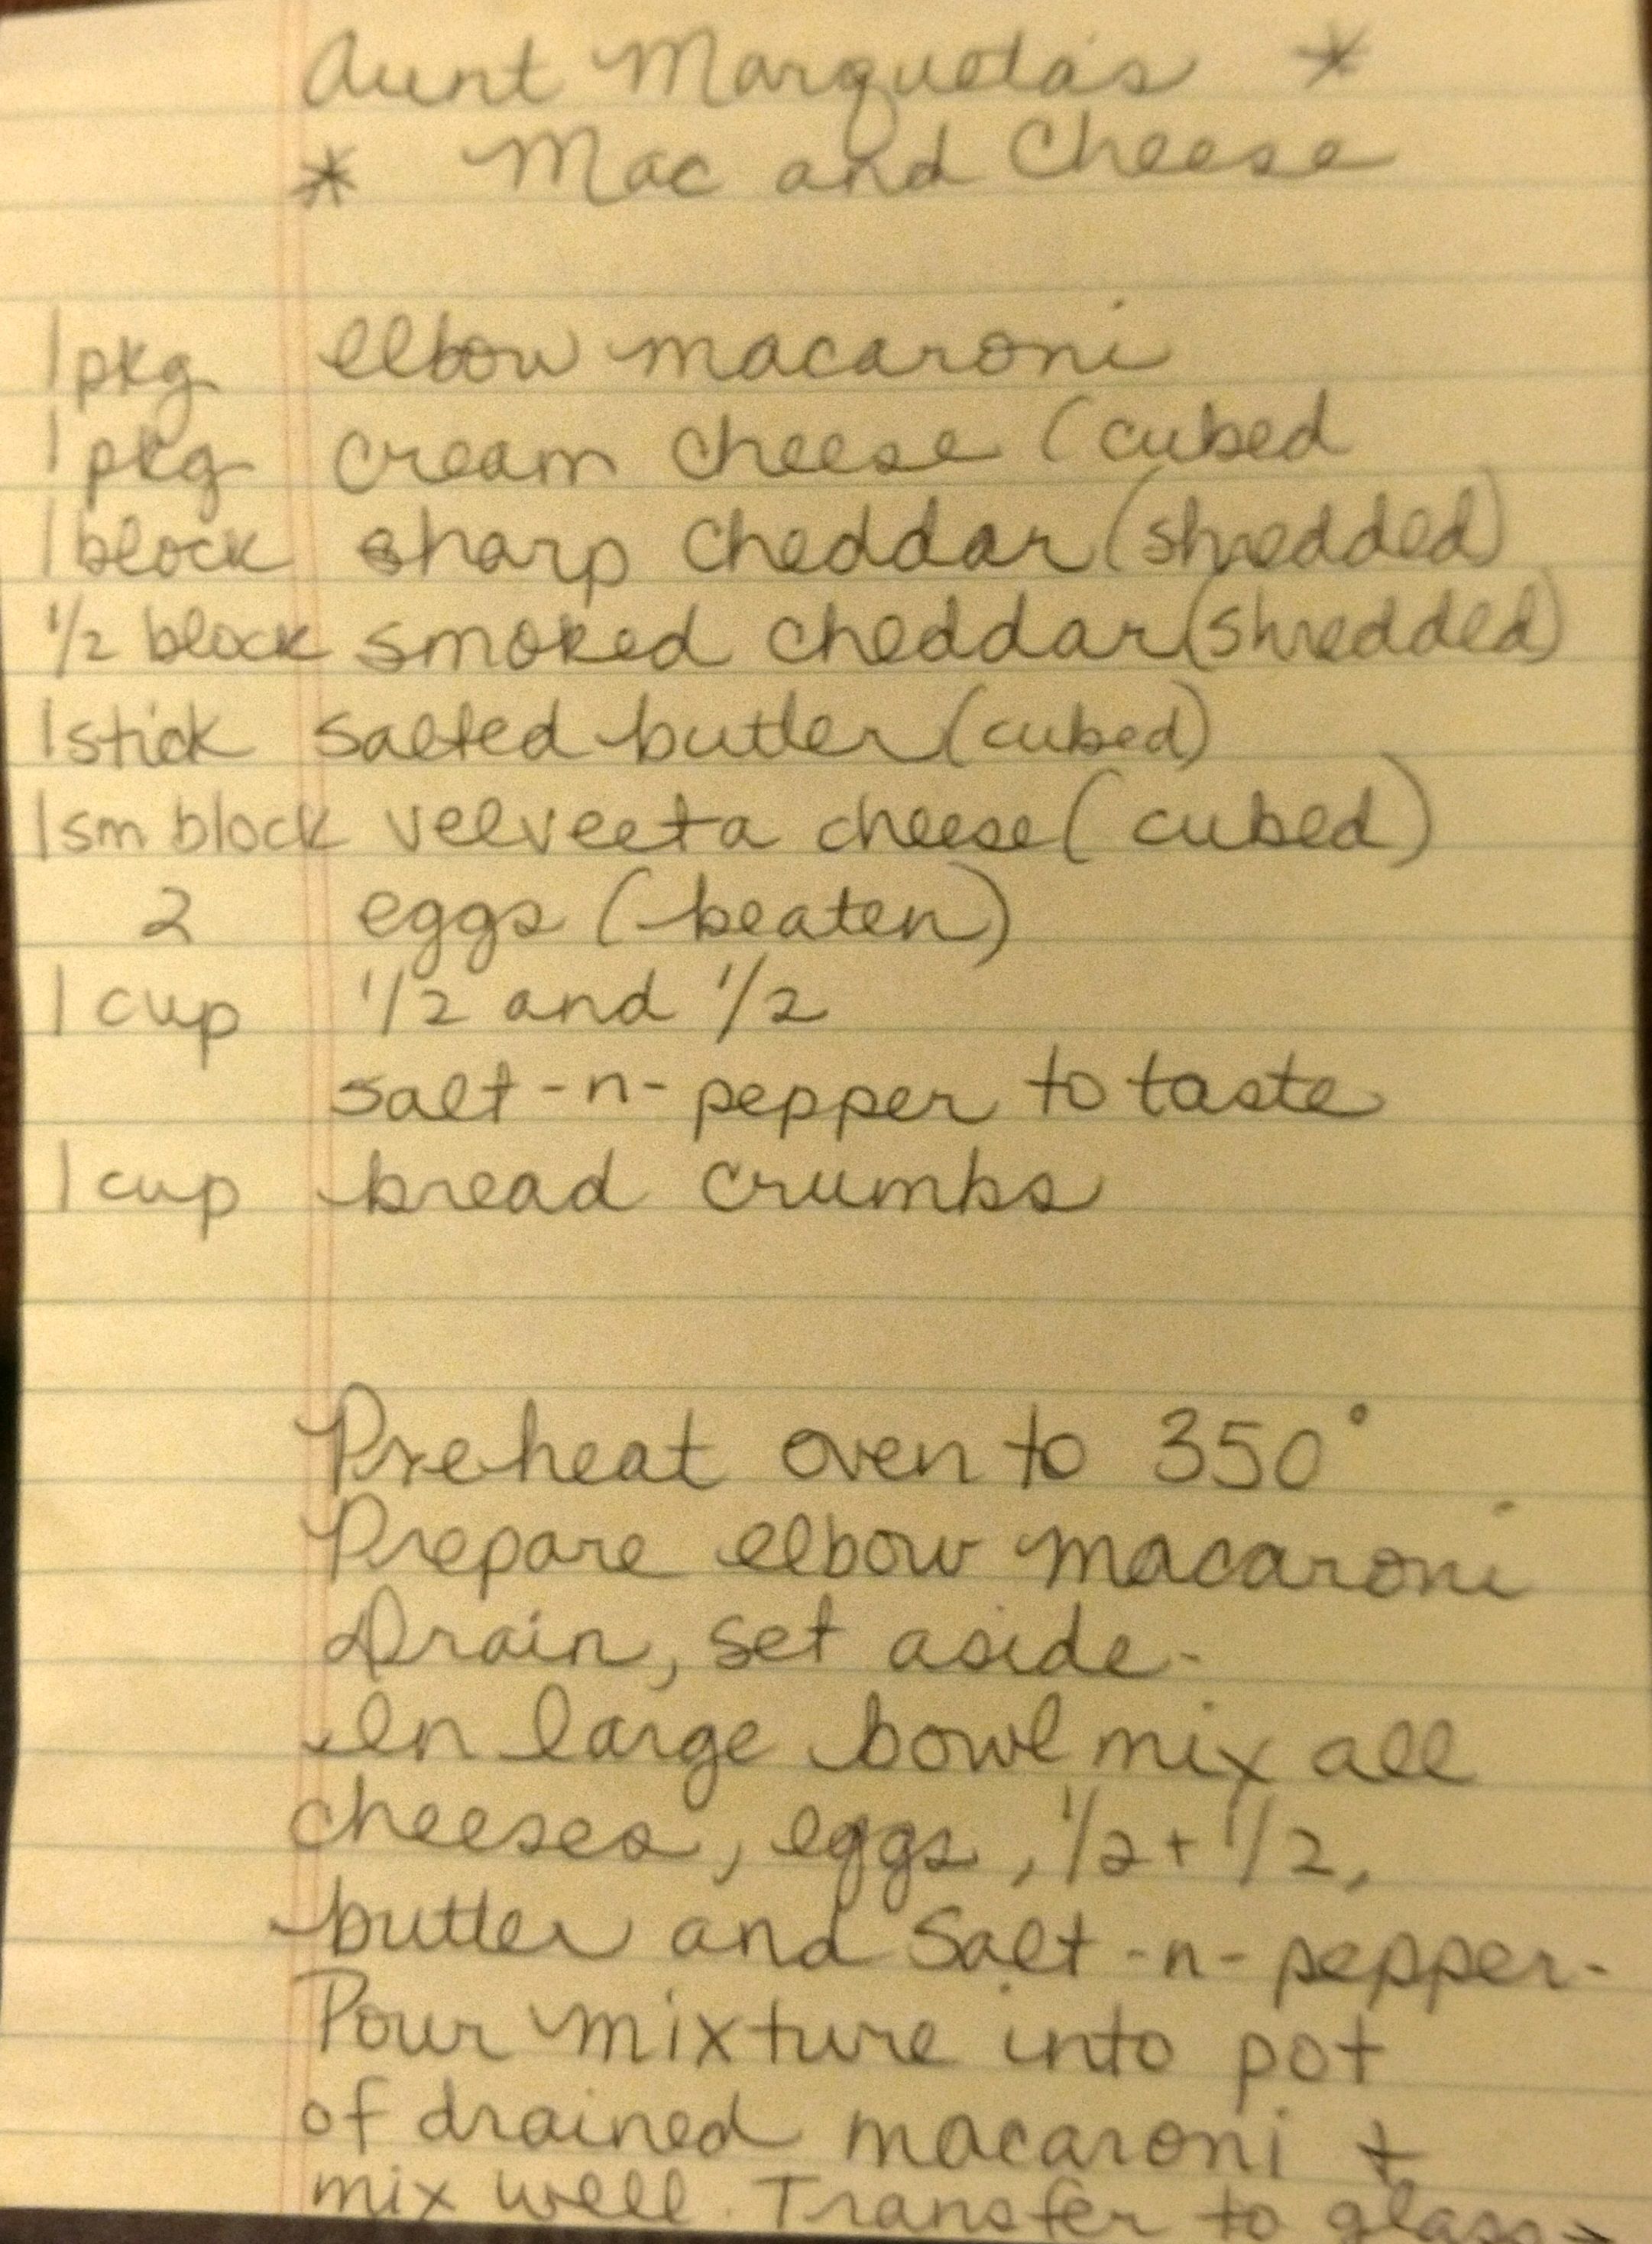 Aunt Marqueta's *
* Mac and Cheese
1 pkg elbow macaroni
1 pkg cream cheese (cubed
1 block sharp cheddar (shredded)
1/2 block smoked cheddar (shredded)
1 stick salted butter (cubed)
1 sm block velveeta cheese (cubed)
2 eggs (beaten)
1 cup 1/2 and 1/2
salt-n-pepper to taste
1 cup bread crumbs
Preheat oven to 350°
Prepare elbow macaroni
Drain, set aside.
In large bowl mix all
cheeses, eggs, 1/2 + 1/2,
butter and Salt-n-pepper.
Pour mixture into pot
of drained macaroni +
mix well. Transfer to glass →